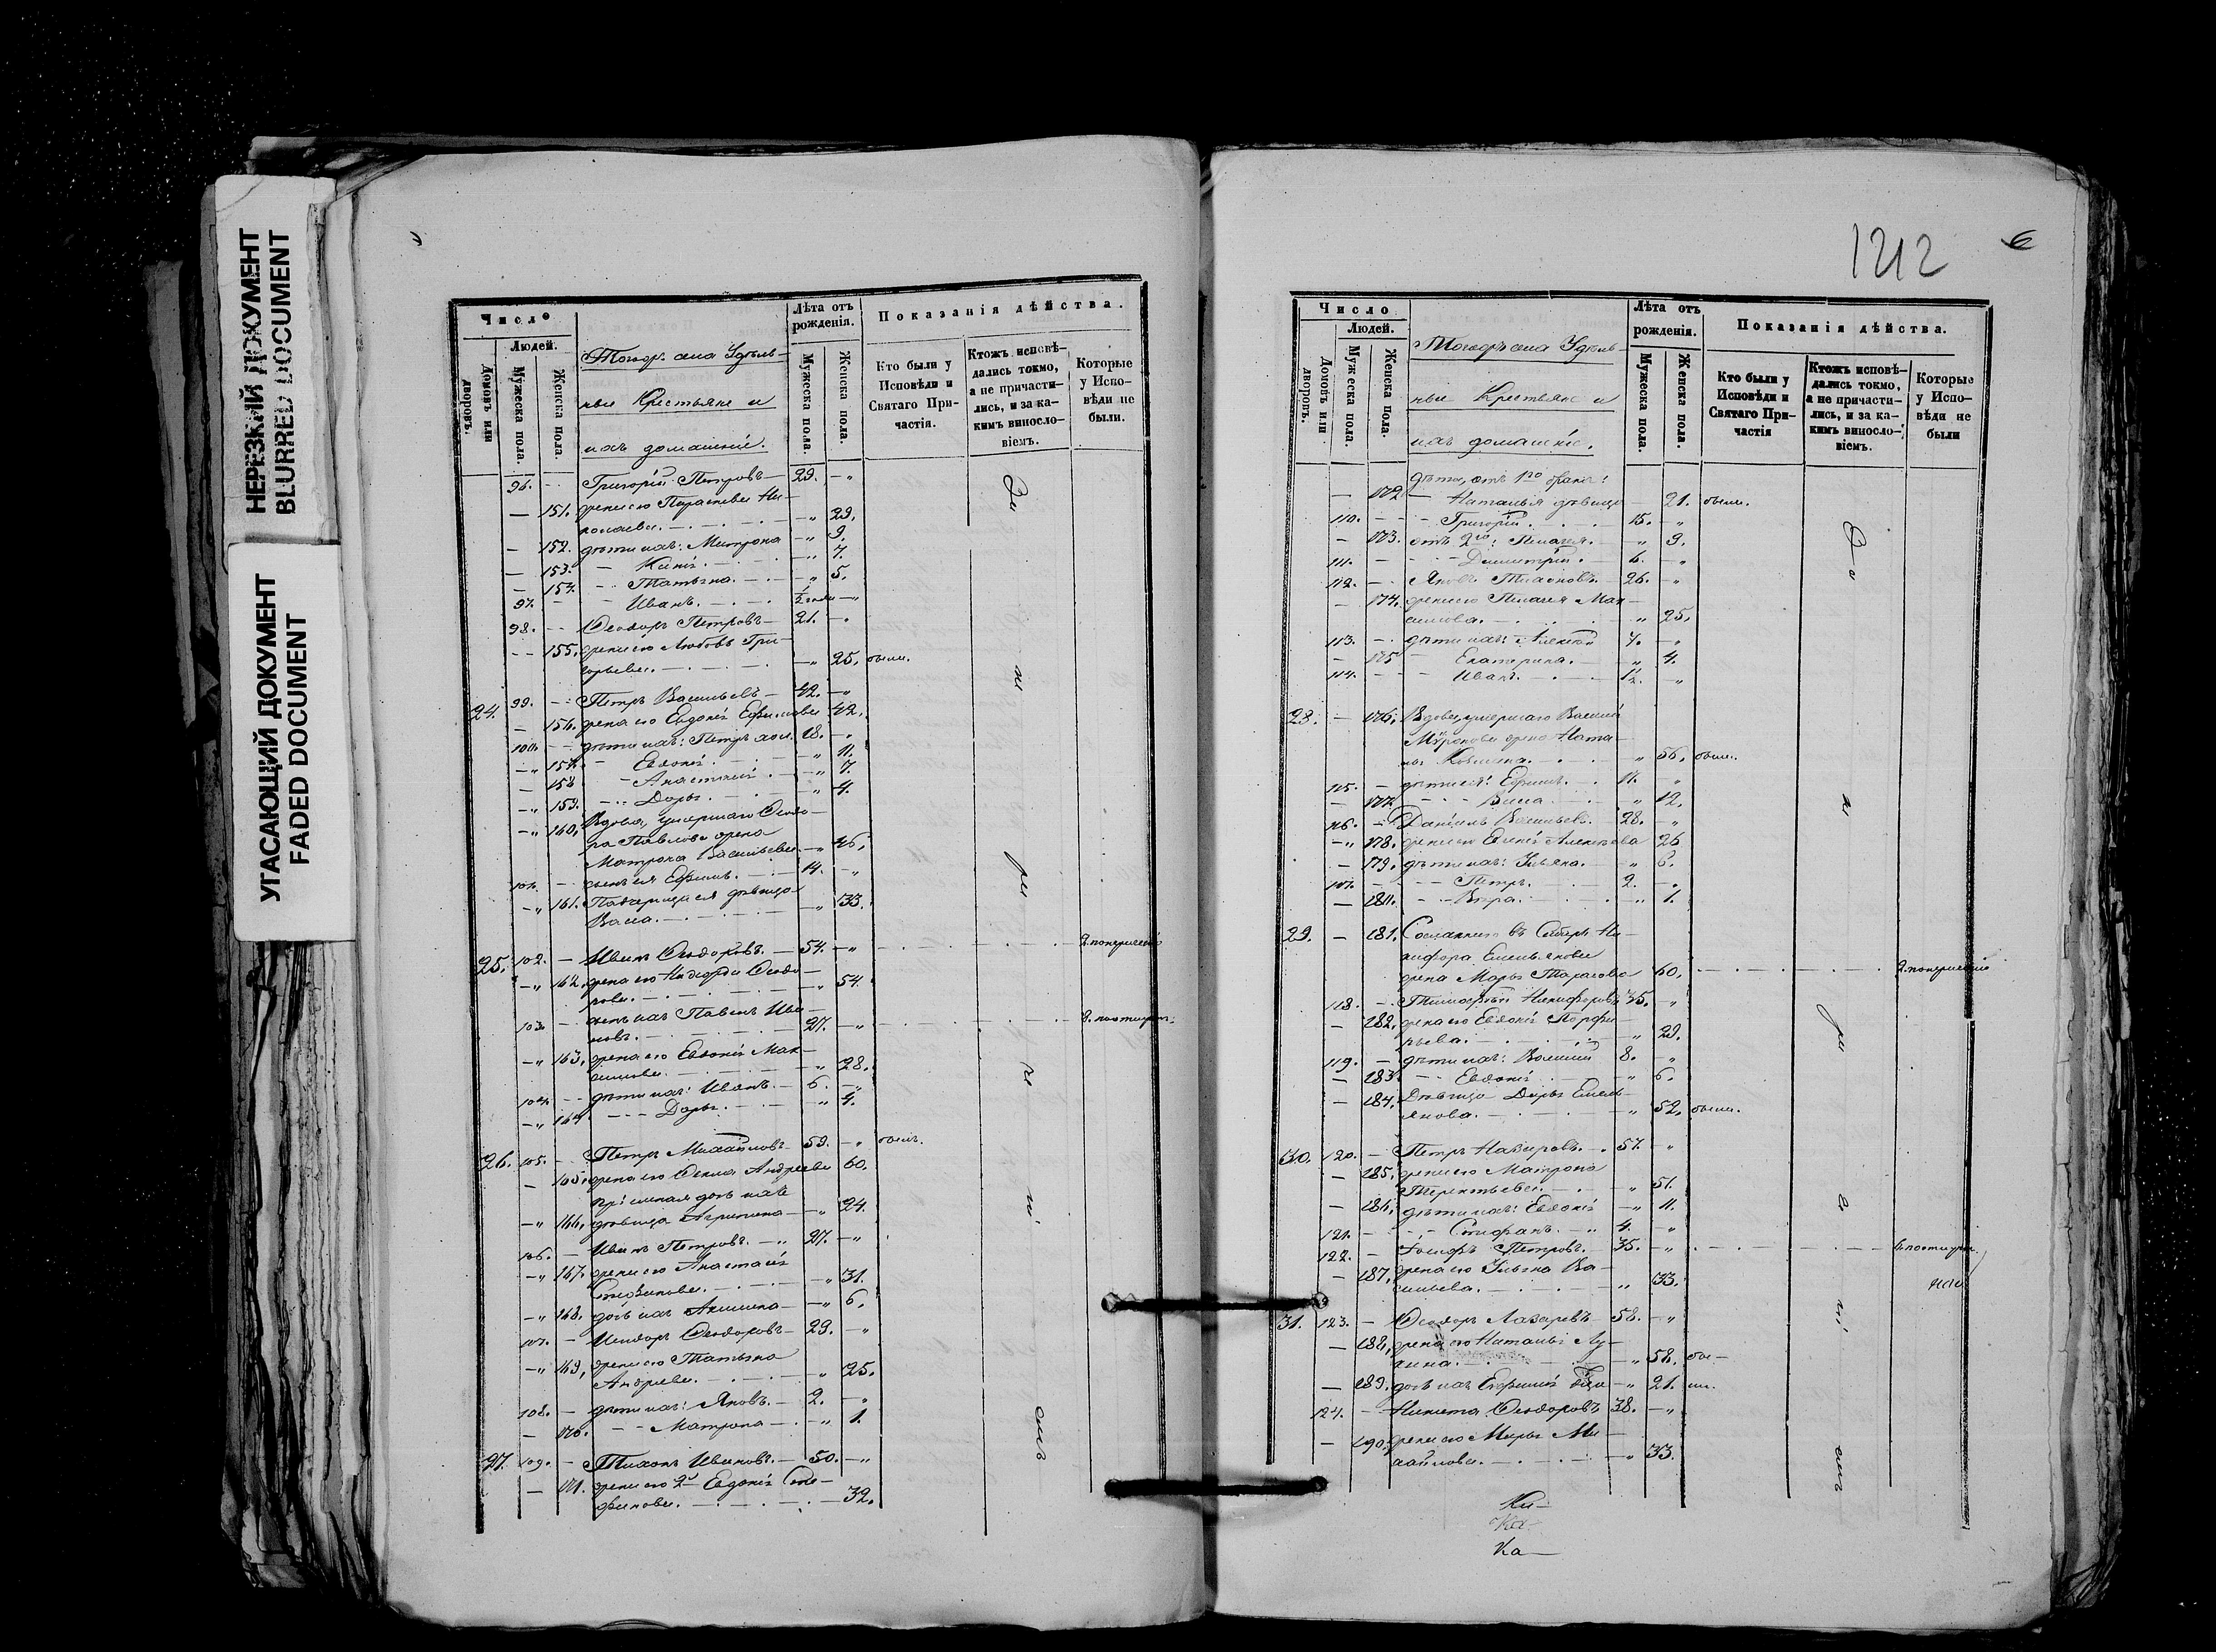 НЕРЕЗКИЙ ДОКУМЕНТ
BLURRED DOCUMENT
УГАСАЮЩИЙ ДОКУМЕНТ
FADED DOCUMENT
Число
Людей.
Домовъ или дворовъ.
Мужеска пола.
Женска пола.
Тогоже села Удѣль-
ные Крестьяне и
ихъ домашніе.
Лѣта отъ рожденія.
Мужеска пола.
Женска пола.
Показанія дѣйства.
Кто были у Исповѣди и Святаго При-частія.
Ктожъ исповѣ-дались токмо, а не причасти-лись, и за ка-кимъ винослo-віемъ.
Которые у Испо-вѣди не были.
96. Григорій Петровъ 29.
151. жена его Параскева Ни-
колаева 29.
152. дѣти ихъ: Матрона 9.
153. 7.
154. Татьяна 5.
97. Иванъ ½ года
98. Ѳеодоръ Петровъ 21.
155. жена его Любовь Гри-
горьева 25. были.
24. 99. Петръ Васильевъ 42.
156. жена его Евдокія Ефимова 42.
100. дѣти ихъ: Петръ 18.
157. Евдокія 11.
158. Анастасія 7.
159. Дарья 4.
160. Вдова, умершаго Ѳеодо-
ра Павлова жена
Матрона Васильева 46.
101. сынъ ея Ефимъ 14.
161. Падчерица ея дѣвица
Васса 33.
25. 102. Иванъ Ѳеодоровъ 54.
162. жена его Ѳеодо-
рова 54.
103. сынъ ихъ Павелъ Ива-
новъ 27.
163. жена его Евдокія Мак-
симова 28.
104. дѣти ихъ: Иванъ 6.
164. Дарья 4.
26. 105. Петръ Михайловъ 59. были.
165. жена его Ѳекла Андреева 60.
пріемная дочь ихъ
166. дѣвица Агрипина 24.
106. Иванъ Петровъ 27.
167. жена его Анастасія
Стефанова 31.
168. дочь ихъ Акилина 6.
107. Исидоръ Ѳеодоровъ 29.
169. жена его Татьяна
Андреева 25.
108. дѣти ихъ: Яковъ 2.
170. Матрона 1.
27. 109. Тихонъ Ивановъ 50.
171. жена его 2я Евдокія Сте-
фанова 32.
1212
6
Число
Людей.
Домовъ или дворовъ.
Мужеска пола.
Женска пола.
Тогоже села Удѣль-
ные Крестьяне и
ихъ домашніе.
Лѣта отъ рожденія.
Мужеска пола
Женска пола.
Показанія дѣйства.
Кто были у Исповѣди и Святаго При-частія
Ктожъ исповѣ-дались токмо, а не причасти-лись, и за ка-кимъ винослo-віемъ.
Которые у Испо-вѣди не были
дѣти, отъ 1го брака:
172 Наталья дѣвица 21. были.
110. Григорій 15.
173. отъ 2го: Пелагея 9.
111. Димитрій 6.
112. Яковъ Тихоновъ 26.
174. жена его Пелагея Мак-
симова 25.
113. дѣти ихъ: Алексѣй 7.
175 Екатерина 4.
114. Иванъ ½.
28. 176. Вдова, умершаго Василія
Миронова жена Ната-
лья 56. были.
115. дѣти ея: Ефимъ 17.
177. Васса 12.
116. Даніилъ Васильевъ 28.
178. жена его Евгенія Алексѣева 26
179. дѣти ихъ: Ульяна 6.
117. Петръ 2.
180. Вѣра 1.
29. 181. Сосланнаго въ Сибирь Ни-
кифора Емельянова
жена Марья Тарасова 60.
118. Тимофей Никифоровъ 35.
182. жена его Евдокія Порфи-
рьева 29.
119. дѣти ихъ: Василій 8.
183. Евдокія 6.
184. Дѣвица Дарья Емель-
янова 52. были.
30. 120. Петръ Назаровъ 57.
185. жена его Матрона
Терентьева 51.
186. дѣти ихъ: Евдокія 11.
121. Стефанъ 4.
122. Іосифъ Петровъ 35.
187. жена его Ульяна Ва-
сильева 33.
31. 123. Ѳеодоръ Лазаревъ 58.
188. жена его Наталья Лу-
кина 58. бы-
189. дочь ихъ Евфимія 21. ли.
124. Никита Ѳеодоровъ 38.
190. жена его Марья Ми-
хайлова 33.
Ка-